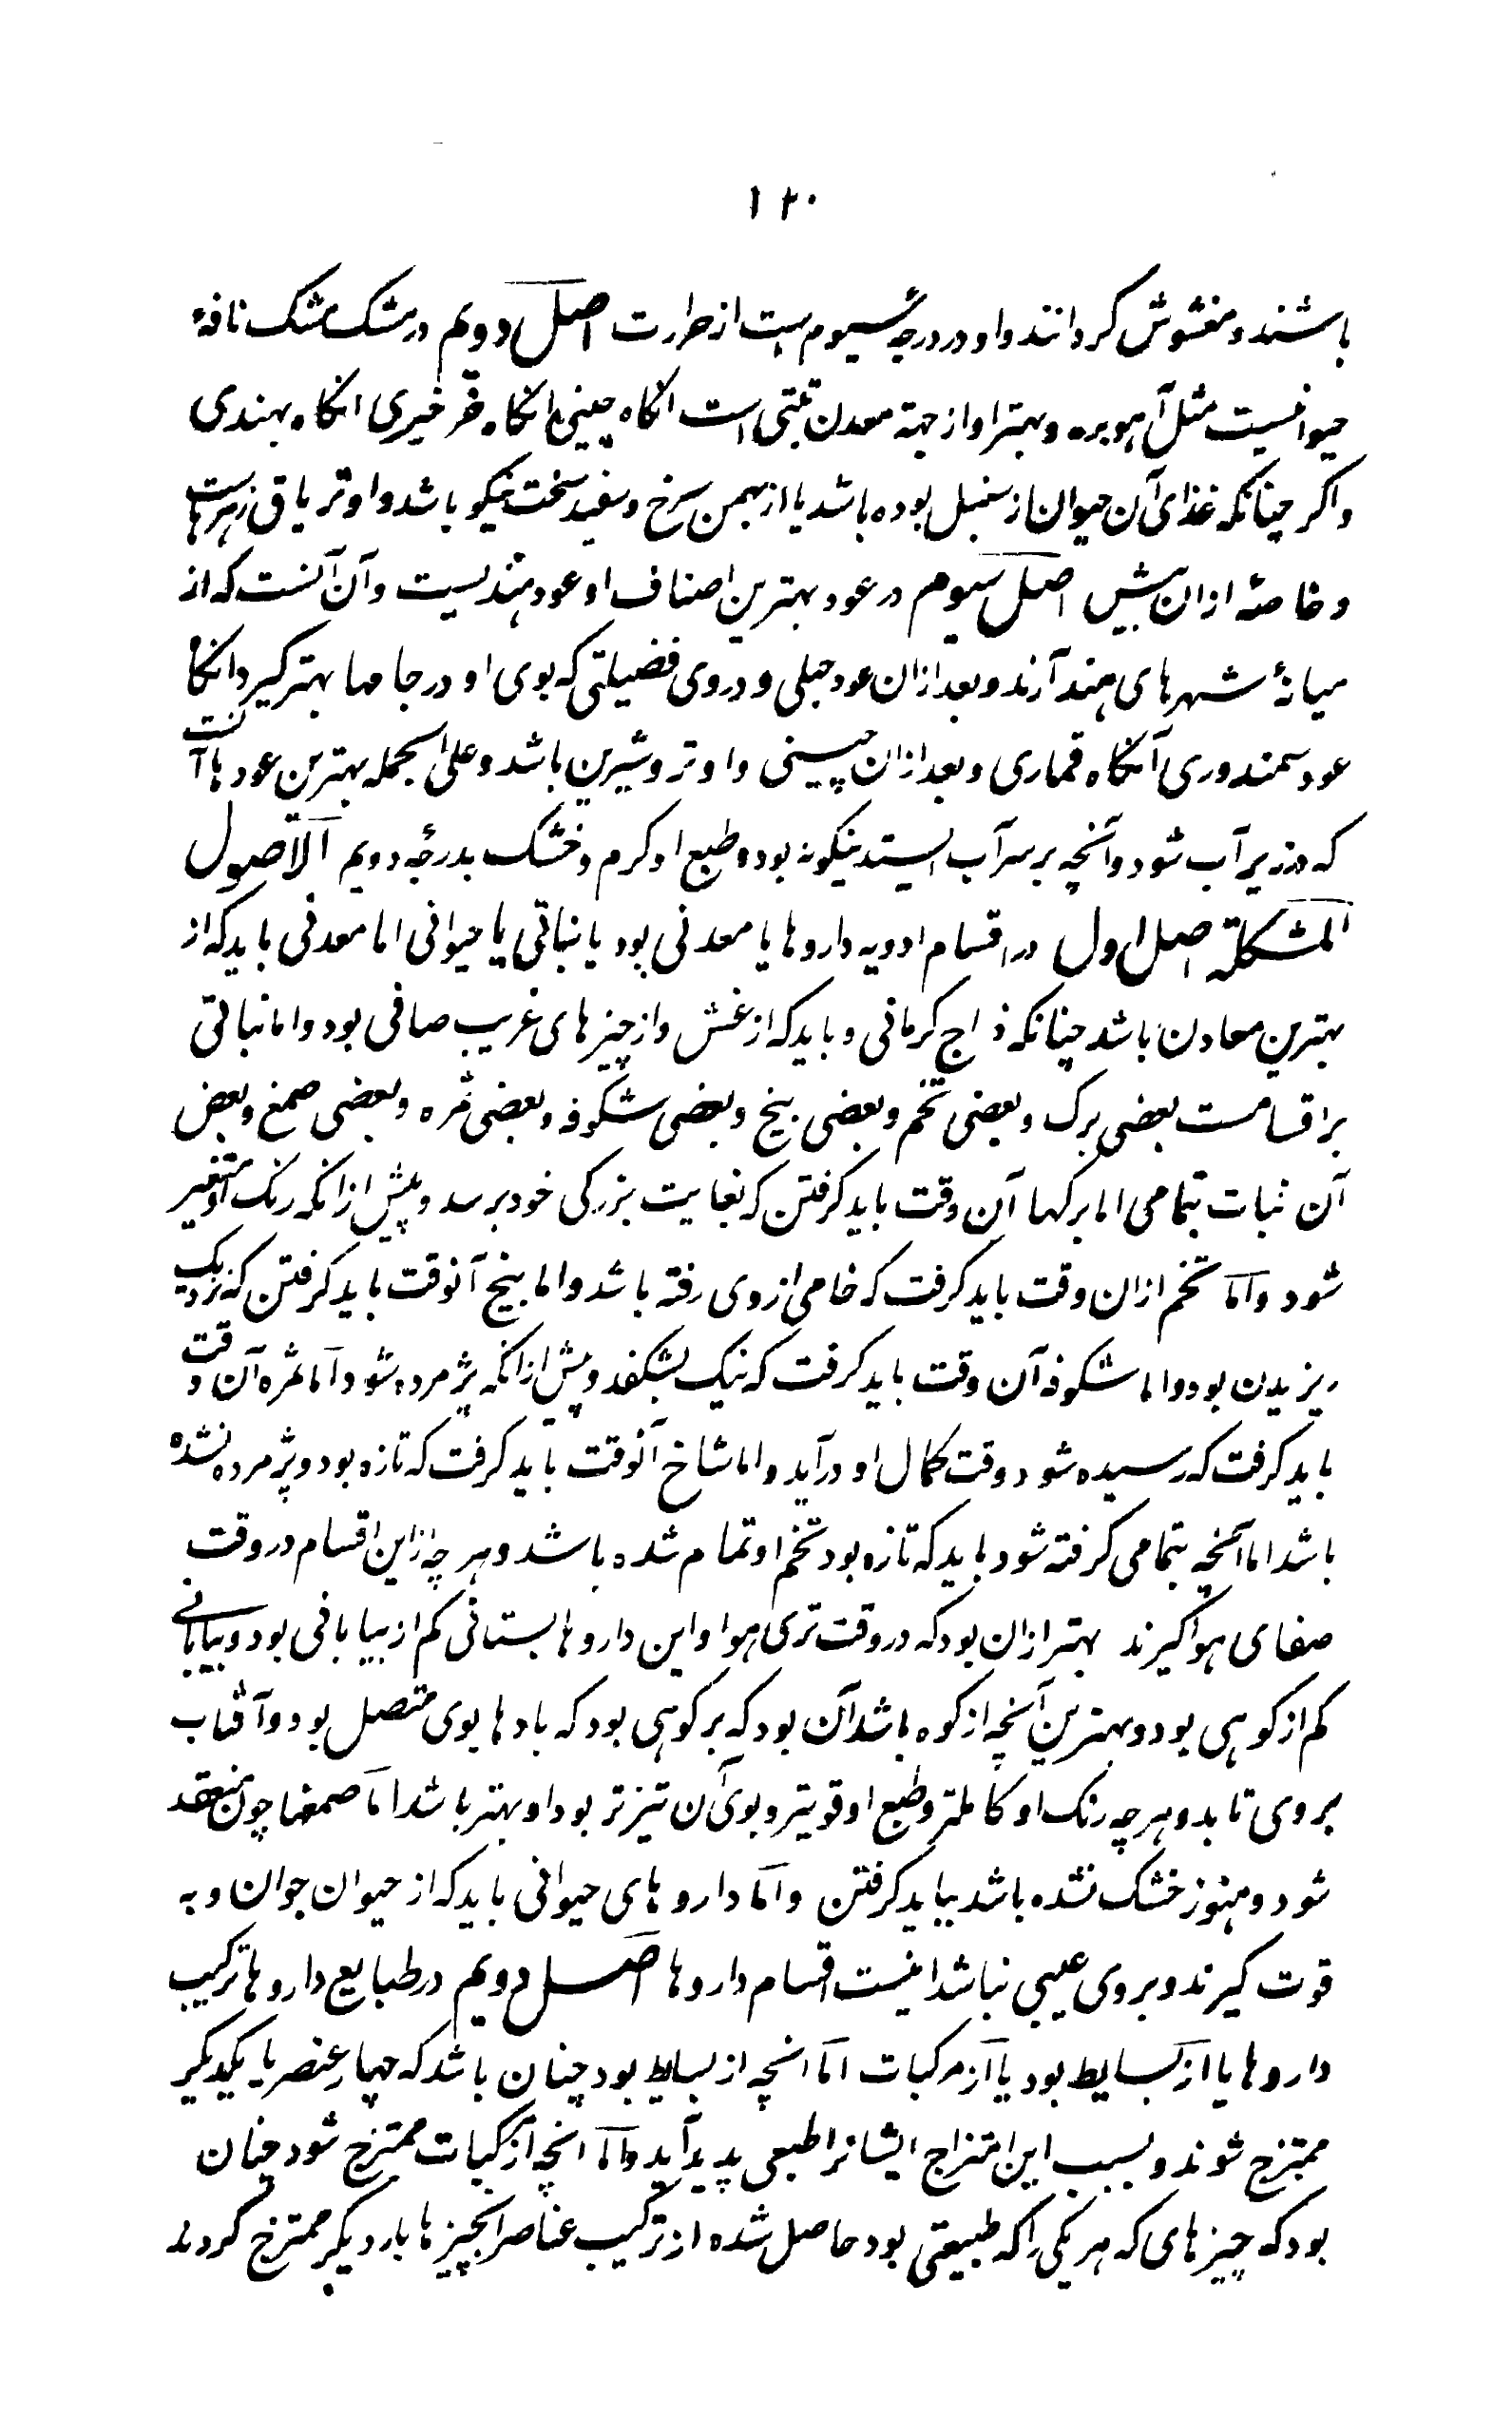 ۱۲۰
باشند و مغشوش کردانند و او در درجهٔ سیوم است از حرارت اصل دویم در مشک مشک نافهٔ
حیوانیست مثل آهو بره و بهتر او از جهة معدن تبتی است انکاه چینی انکاه خرخیزی انکاه هندی
و اکر چنانکه غذای آن حیوان از سنبل بوده باشد یا از بهمن سرخ و سفید سخت نیکو باشد و او تریاق زهرهاست
و خاصهٔ ازان بیش اصل سیوم در عود بهترین اصناف او عود هندیست و آن آنست که از
میانهٔ شهرهای هند آرند و بعد ازان عود جبلی و در وی فضیلتی که بوی او در جامها بهتر کیرد انکاه
عود سمندوری آنکاه قماری و بعد ازان چینی و او تر و شیرین باشد و علی الجمله بهترین عودها آنست
که در زیر آب شود و آنچه بر سر آب ایستد نیکو نه بود و طبع او کرم و خشک بدرجهٔ دویم الاصول
المشکلة اصل اول در اقسام ادویه داروها یا معدنی بود یا نباتی یا حیوانی اما معدنی باید که از
بهترین معادن باشد چنانکه زاج کرمانی و باید که از غش و از چیزهای غریب صافی بود و اما نباتی
بر اقسامست بعضی برک و بعضی تخم و بعضی بیخ و بعضی شکوفه و بعضی ثمره و بعضی صمغ و بعض
آن نبات بتمامی اما برکها آن وقت باید کرفتن که بغایت بزرکی خود برسد و پیش ازانکه رنک او متغیر
شود و اما تخم ازان وقت باید کرفت که خامی از وی رفته باشد و اما بیخ آنوقت باید کرفتن که نزدیک
ریزیدن بود و اما شکوفه آن وقت باید کرفت که نیک بشکفد و پیش ازانکه پژمرده شود و اما ثمره آن وقت
باید کرفت که رسیده شود و وقت کمال او در آید و اما شاخ آنوقت باید کرفت که تازه بود و پژمرده نشده
باشد اما آنچه بتمامی کرفته شود باید که تازه بود تخم او تمام شده باشد و هر چه ازین اقسام در وقت
صفای هوا کیرند بهتر ازان بود که در وقت تری هوا و این داروها بستانی کم از بیابانی بود و بیابانی
کم از کوهی بود و بهترین آنچه از کوه باشد آن بود که بر کوهی بود که بادها بوی متصل بود و آفتاب
بر وی تابد و هر چه رنک او کاملتر و طبع او قویتر و بوی آن تیزتر بود او بهتر باشد اما صمغها چون منعقد
شود و هنوز خشک نشده باشد بباید کرفتن و اما داروهای حیوانی باید که از حیوان جوان و به
قوت کیرند و بروی عیبی نباشد اینست اقسام داروها اصل دویم در طبایع داروها ترکیب
داروها یا از بسایط بود یا از مرکبات اما انچه از بسایط بود چنان باشد که چهار عنصر با یکدیکر
ممتزج شوند و بسبب این امتزاج ایشانرا طبعی پدید آید و اما انچه از مرکبات ممتزج شود چنان
بود که چیزهای که هر یکی را که طبیعتی بود حاصل شده از ترکیب عناصر انچیزها بار دیکر ممتزج کردند